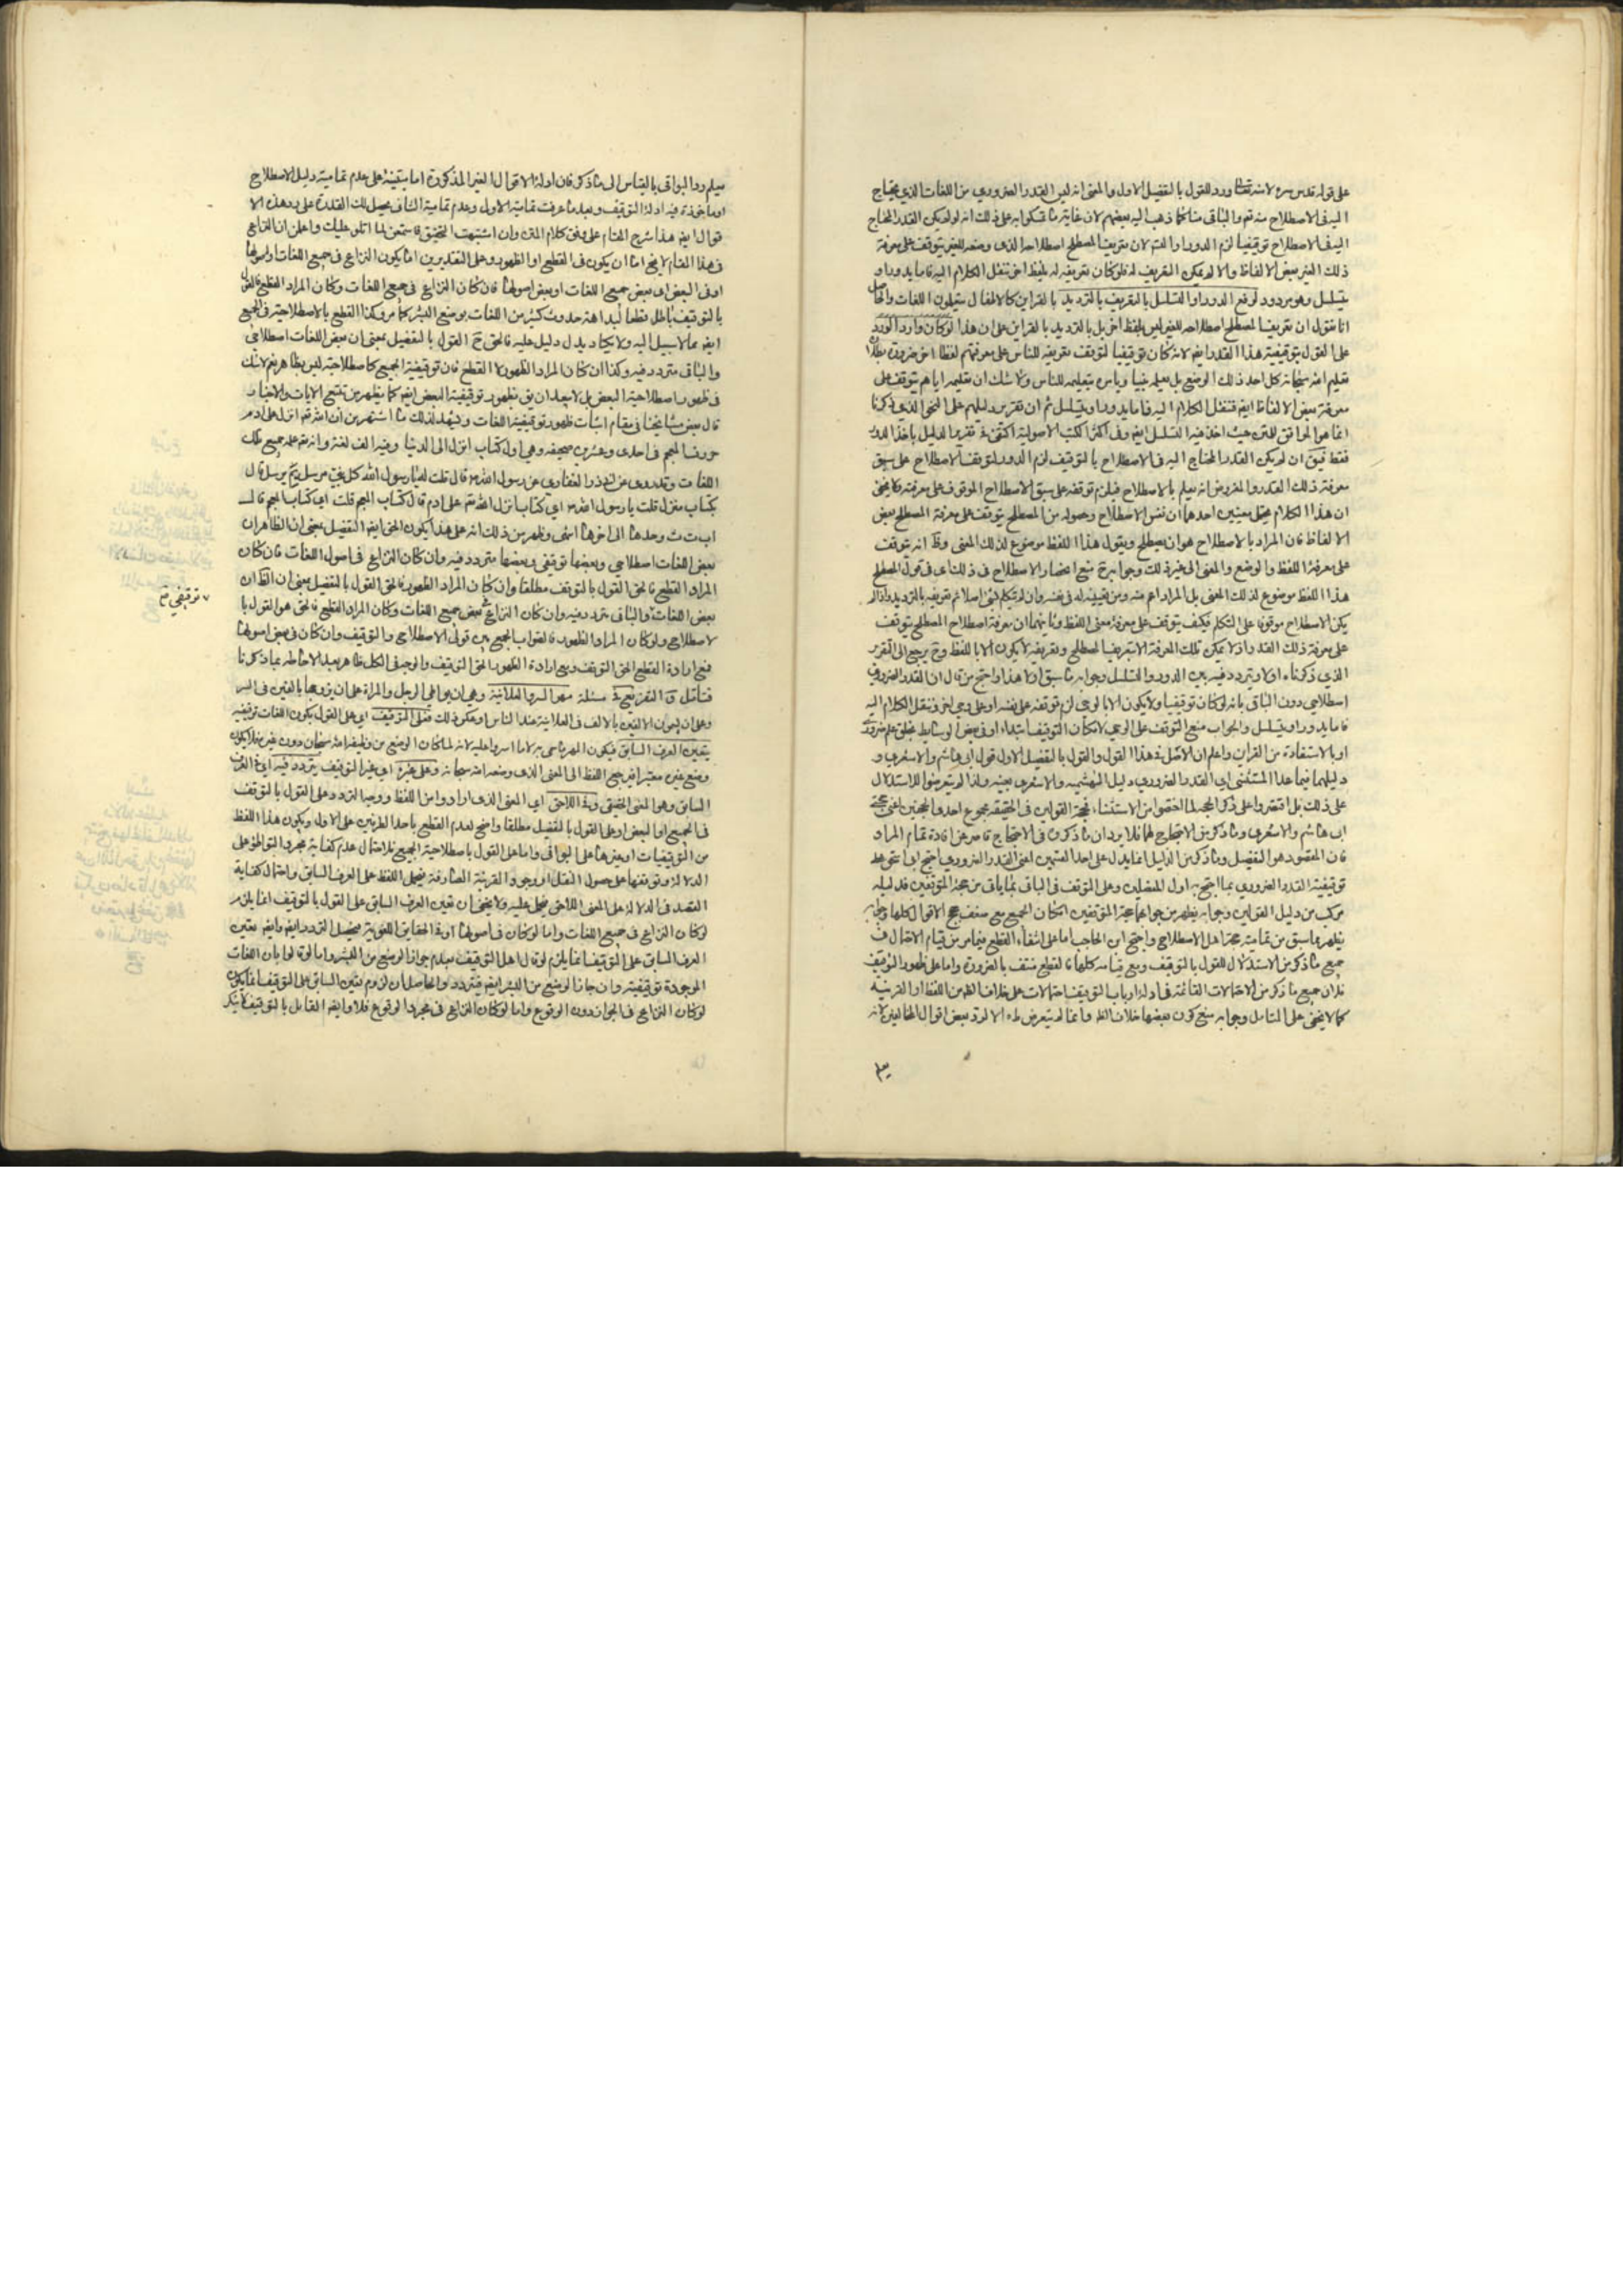 على قوله قدس سره لانه تعالى ورد للقول بالتفصيل الاول والمعنى انه ليس القدر الضروري من اللغات الذي يحتاج
اليه في الاصطلاح منه تع والباقي منا كما ذهب اليه بعضهم لان غاية ما تمسكوا به على ذلك انه لو لم يكن القدر المحتاج
اليه في الاصطلاح توقيفيا لزم الدور او التسلسل لان تعريف المصطلح اصطلاحه الذي وضعه للغير يتوقف على معرفة
ذلك الغير بعض الالفاظ والا لم يمكن التعريف له فلو كان تعريفه له بلفظ اخر ننقل الكلام اليه فاما يدور او
يتسلسل وهو مردود لرفع الدور او التسلسل بالتعريف بالترديد بالقراين كالاطفال يتعلمون اللغات والحاصل
انا نقول ان تعريف المصطلح اصطلاحه للغير ليس بلفظ اخر بل بالترديد بالقراين على ان هذا لو كان واردا لورد
على القول بتوقيفية هذا القدر ايضا لانه كان توقيفيا لتوقف تعريفه للناس على معرفتهم لفظا اخر ضرورة بطلان
تعليم الله سبحانه كل احد ذلك الوضع بل يعلمه نبيا ويامره بتعليمه للناس ولا شك ان تعليمه اياهم يتوقف على
معرفة بعض الالفاظ ايضا فننقل الكلام اليه فاما يدور او يتسلسل ثم ان تقرير دليلهم على النحو الذي ذكرنا
انما هو الموافق للمتن حيث اخذ فيه التسلسل ايضا وفي اكثر الكتب الاصولية اكتفى في تقرير الدليل باخذ الدور
فقط فيق ان لم يكن القدر المحتاج اليه في الاصطلاح بالتوقيف لزم الدور لتوقف الاصطلاح على سبق
معرفة ذلك القدر والمفروض انه يعلم بالاصطلاح فيلزم توقفه على سبق الاصطلاح الموقوف على معرفته ولا يخفى
ان هذا الكلام يحتمل معنيين احدهما ان نفس الاصطلاح وحصوله من المصطلح يتوقف على معرفة المصطلح بعض
الالفاظ فان المراد بالاصطلاح هو ان يصطلح ويقول هذا اللفظ موضوع لذلك المعنى وظ انه يتوقف
على معرفة اللفظ والوضع والمعنى الى غير ذلك وجوابه منع انحصار الاصطلاح في ذلك اي في قول المصطلح
هذا اللفظ موضوع لذلك المعنى بل المراد اعم منه ومن تعيينه له في نفسه وان لم يتكلم بشئ اصلا ثم تعريفه بالترديد واذا لم
يكن الاصطلاح موقوفا على التكلم فكيف يتوقف على معرفة معنى اللفظ وثانيهما ان معرفة اصطلاح المصطلح يتوقف
على معرفة ذلك القدر اذ لا يمكن تلك المعرفة الا بتعريف المصطلح وتعريفه لا يكون الا باللفظ وح يرجع الى التقرير
الذي ذكرناه اولا ويتردد فيه بين الدور والتسلسل وجوابه ما سبق ان هذا واحتج من قال ان القدر الضروري
اصطلاحي دون الباقي بانه لو كان توقيفيا ولا يكون الا بالوحي لزم توقفه على نفسه او على وحي اخر فننقل الكلام اليه
فاما يدور او يتسلسل والجواب منع التوقف على الوحي لامكان التوقيف ابتداء او في بعض الوسائط بخلق علم ضروري
او بالاستفادة من القراين واعلم ان الاصل في هذا القول والقول بالتفصيل الاول قول ابي هاشم والاشعري و
دليلهما فيما عدا المستثنى اي القدر الضروري دليل البهشمية والاشعري بعينه ولذا لم يتعرضوا للاستدلال
على ذلك بل اقتصروا على ذكر الحجة لما اختصوا من الاستثناء فحجة القولين في الحقيقة مجموع احدى الحجتين اعني حجة
ابي هاشم والاشعري وما ذكر من الاحتجاج لهما فلا يرد ان ما ذكروه في الاحتجاج قاصر عن افادة تمام المراد
فان المقصود هو التفصيل وما ذكر من الدليل انما يدل على احد القسمين اعني القدر الضروري احتج ابو اسحق على
توقيفية القدر الضروري بما احتج به اول المفصلين وعلى التوقف في الباقي بما ياتي من حجة المتوقفين فدليله
مركب من دليل القولين وجوابه يظهر من جوابهما حجة المتوقفين امكان الجميع مع ضعف حجج الاقوال كلها وجوابه
يظهر مما سبق من تمامية حجة اهل الاصطلاح واحتج ابن الحاجب اما على انتفاء القطع فبما مر من قيام الاحتمال في
جميع ما ذكر من الاستدلال للقول بالتوقيف ومع قيامه كلها فالقطع منتف بالضرورة واما على ظهور التوقيف
فلان جميع ما ذكر من الاحتمالات القائمة في ادلة ارباب التوقيف احتمالات على خلاف الظاهر من اللفظ او القرينة
كما لا يخفى على المتامل وجوابه منع كون بعضها خلاف الظ وانما لم يتعرض طاه الا لرد بعض اقوال المخالفين لانه
يعلم
يعلم رد البواقي بالقياس الى ما ذكر فان ادلة الاقوال الغير المذكورة اما مبتنية على عدم تمامية دليل الاصطلاح
او ماخوذة فيه ادلة التوقيف وبعد ما عرفت تمامية الاول وعدم تمامية الثاني يحصل لك القدرة على رد هذه الا
قوال ايضا هذا شرح المقام على وفق كلام المتن وان اشتهيت التحقيق فاستمع لما اتلو عليك واعلم ان النزاع
في هذا المقام لا يخ اما ان يكون في القطع او الظهور وعلى التقديرين اما يكون النزاع في جميع اللغات او اصولها
او في البعض اي بعض جميع اللغات او بعض اصولها فان كان النزاع في جميع اللغات وكان المراد القطع فالقول
بالتوقيف باطل قطعا لبداهة حدوث كثير من اللغات بوضع البشر كما مر وكذا القطع بالاصطلاحية في الجميع
ايضا مما لا سبيل اليه ولا يكاد يدل دليل عليه فالحق ح القول بالتفصيل بمعنى ان بعض اللغات اصطلاحي
والباقي متردد فيه وكذا ان كان المراد الظهور لا القطع فان توقيفية الجميع كاصطلاحيته ليس بظاهر نعم لا شك
في ظهور اصطلاحية البعض بل لا يبعد ان يق بظهور توقيفية البعض ايضا كما يظهر من تتبع الايات والاخبار
قال بعض مشايخنا في مقام اثبات ظهور توقيفية اللغات ويشهد لذلك ما اشتهر من ان الله تع انزل على ادم
حروف المعجم في احدى وعشرين صحيفه وهي اول كتاب انزل الى الدنيا وفيه الف لغة وانه تع علمه جميع تلك
اللغات وقد روى عن ابي ذر الغفاري عن رسول الله ص قال قلت له يا رسول الله كل نبي مرسل بم يرسل قال
بكتاب منزل قلت يا رسول الله اي كتاب انزل الله تع على ادم قال كتاب المعجم قلت اي كتاب المعجم قال
ا ب ت ث وعدها الى اخرها انتهى وظهر من ذلك انه على هذا يكون الحق ايضا التفصيل بمعنى ان الظاهر ان
بعض اللغات اصطلاحي وبعضها توقيفي وبعضها متردد فيه وان كان النزاع في اصول اللغات فان كان
المراد القطع فالحق القول بالتوقف مطلقا وان كان المراد الظهور فالحق القول بالتفصيل بمعنى ان الظ ان
بعض اللغات والباقي متردد فيه وان كان النزاع في بعض جميع اللغات وكان المراد القطع فالحق هو القول با
لاصطلاحي ولو كان المراد الظهور فالصواب الجمع بين قولي الاصطلاحي والتوقيف وان كان في بعض اصولها
فمع ارادة القطع الحق التوقف ومع ارادة الظهور الحق التوقيف والوجه في الكل ظاهر بعد الاحاطة بما ذكرنا
فتامل ق التفريع في مسئلة مهر السر والعلانية وهي ان يواطي الرجل والمراة على ان يتزوجها بالفين في السر
وعلى ان يسمون الالفين بالالف في العلانية عند الناس او عكس ذلك فعلى التوقيف اي على القول بكون اللغات توقيفية
يتعين العرف السابق فيكون المهر ما سمي به لا ما اسروا عليه لانه لما كان الوضع من وظيفة الله سبحانه دون غيره فلا يكون
وضع غيره معتبرا فيرجع اللفظ الى المعنى الذي وضعه الله سبحانه وعلى غيره اي غير التوقيف يتردد فيه اي في العرف
السابق وهو المعنى الحقيقي وفي اللاحق اي المعنى الذي ارادوا من اللفظ ووجه التردد على القول بالتوقف
في الجميع او البعض او على القول بالتفصيل مطلقا واضح لعدم القطع باحد الطرفين على الاول وبكون هذا اللفظ
من التوقيفيات او غيرها على البواقي واما على القول باصطلاحية الجميع فلاحتمال عدم كفاية مجرد التواطؤ على
الدلالة وتوقفها على حصول النقل او وجود القرينة الصارفة فيحمل اللفظ على العرف السابق واحتمال كفاية
القصد في الدلالة على المعنى اللاحق فيحمل عليه ولا يخفى ان تعين العرف السابق على القول بالتوقيف انما يلزم
لو كان النزاع في جميع اللغات واما لو كان في اصولها او في الحقايق اللغوية فيحصل التردد ايضا وايضا تعين
العرف السابق على التوقيف انما يلزم لو قال اهل التوقيف بعدم جواز الوضع من البشر واما لو قالوا بان اللغات
الموجودة توقيفية وان جاز الوضع من البشر ايضا فيتردد والحاصل ان لزوم تعين السابق على التوقيف انما يكون
لو كان النزاع في الجواز دون الوقوع واما لو كان النزاع في مجرد الوقوع فلا وايضا القائل بالتوقيف لا ينكر
توقيفي صح